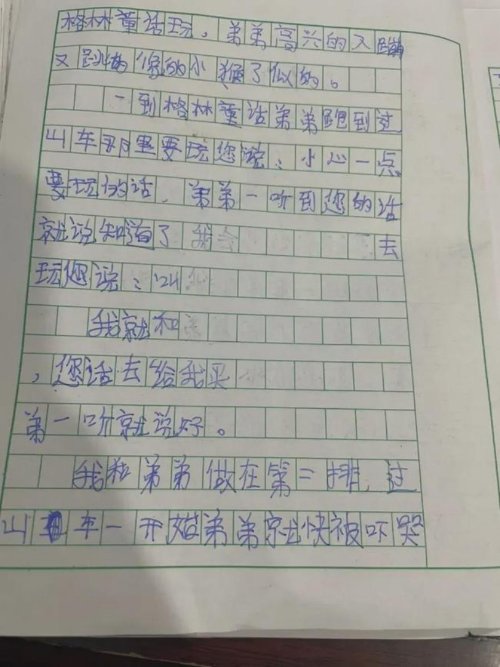 格林童话玩，弟弟高兴的又蹦
又跳的像的小猴子似的。
一到格林童话弟弟跑到过
山车那里要玩您说：小心一点
要玩的话，弟弟一听到您的话
就说知道了我 去
玩您说：
我就和
，您话去给我买
弟一听就说好。
我和弟弟做在第二排，过
山车一开始弟弟就快被吓哭